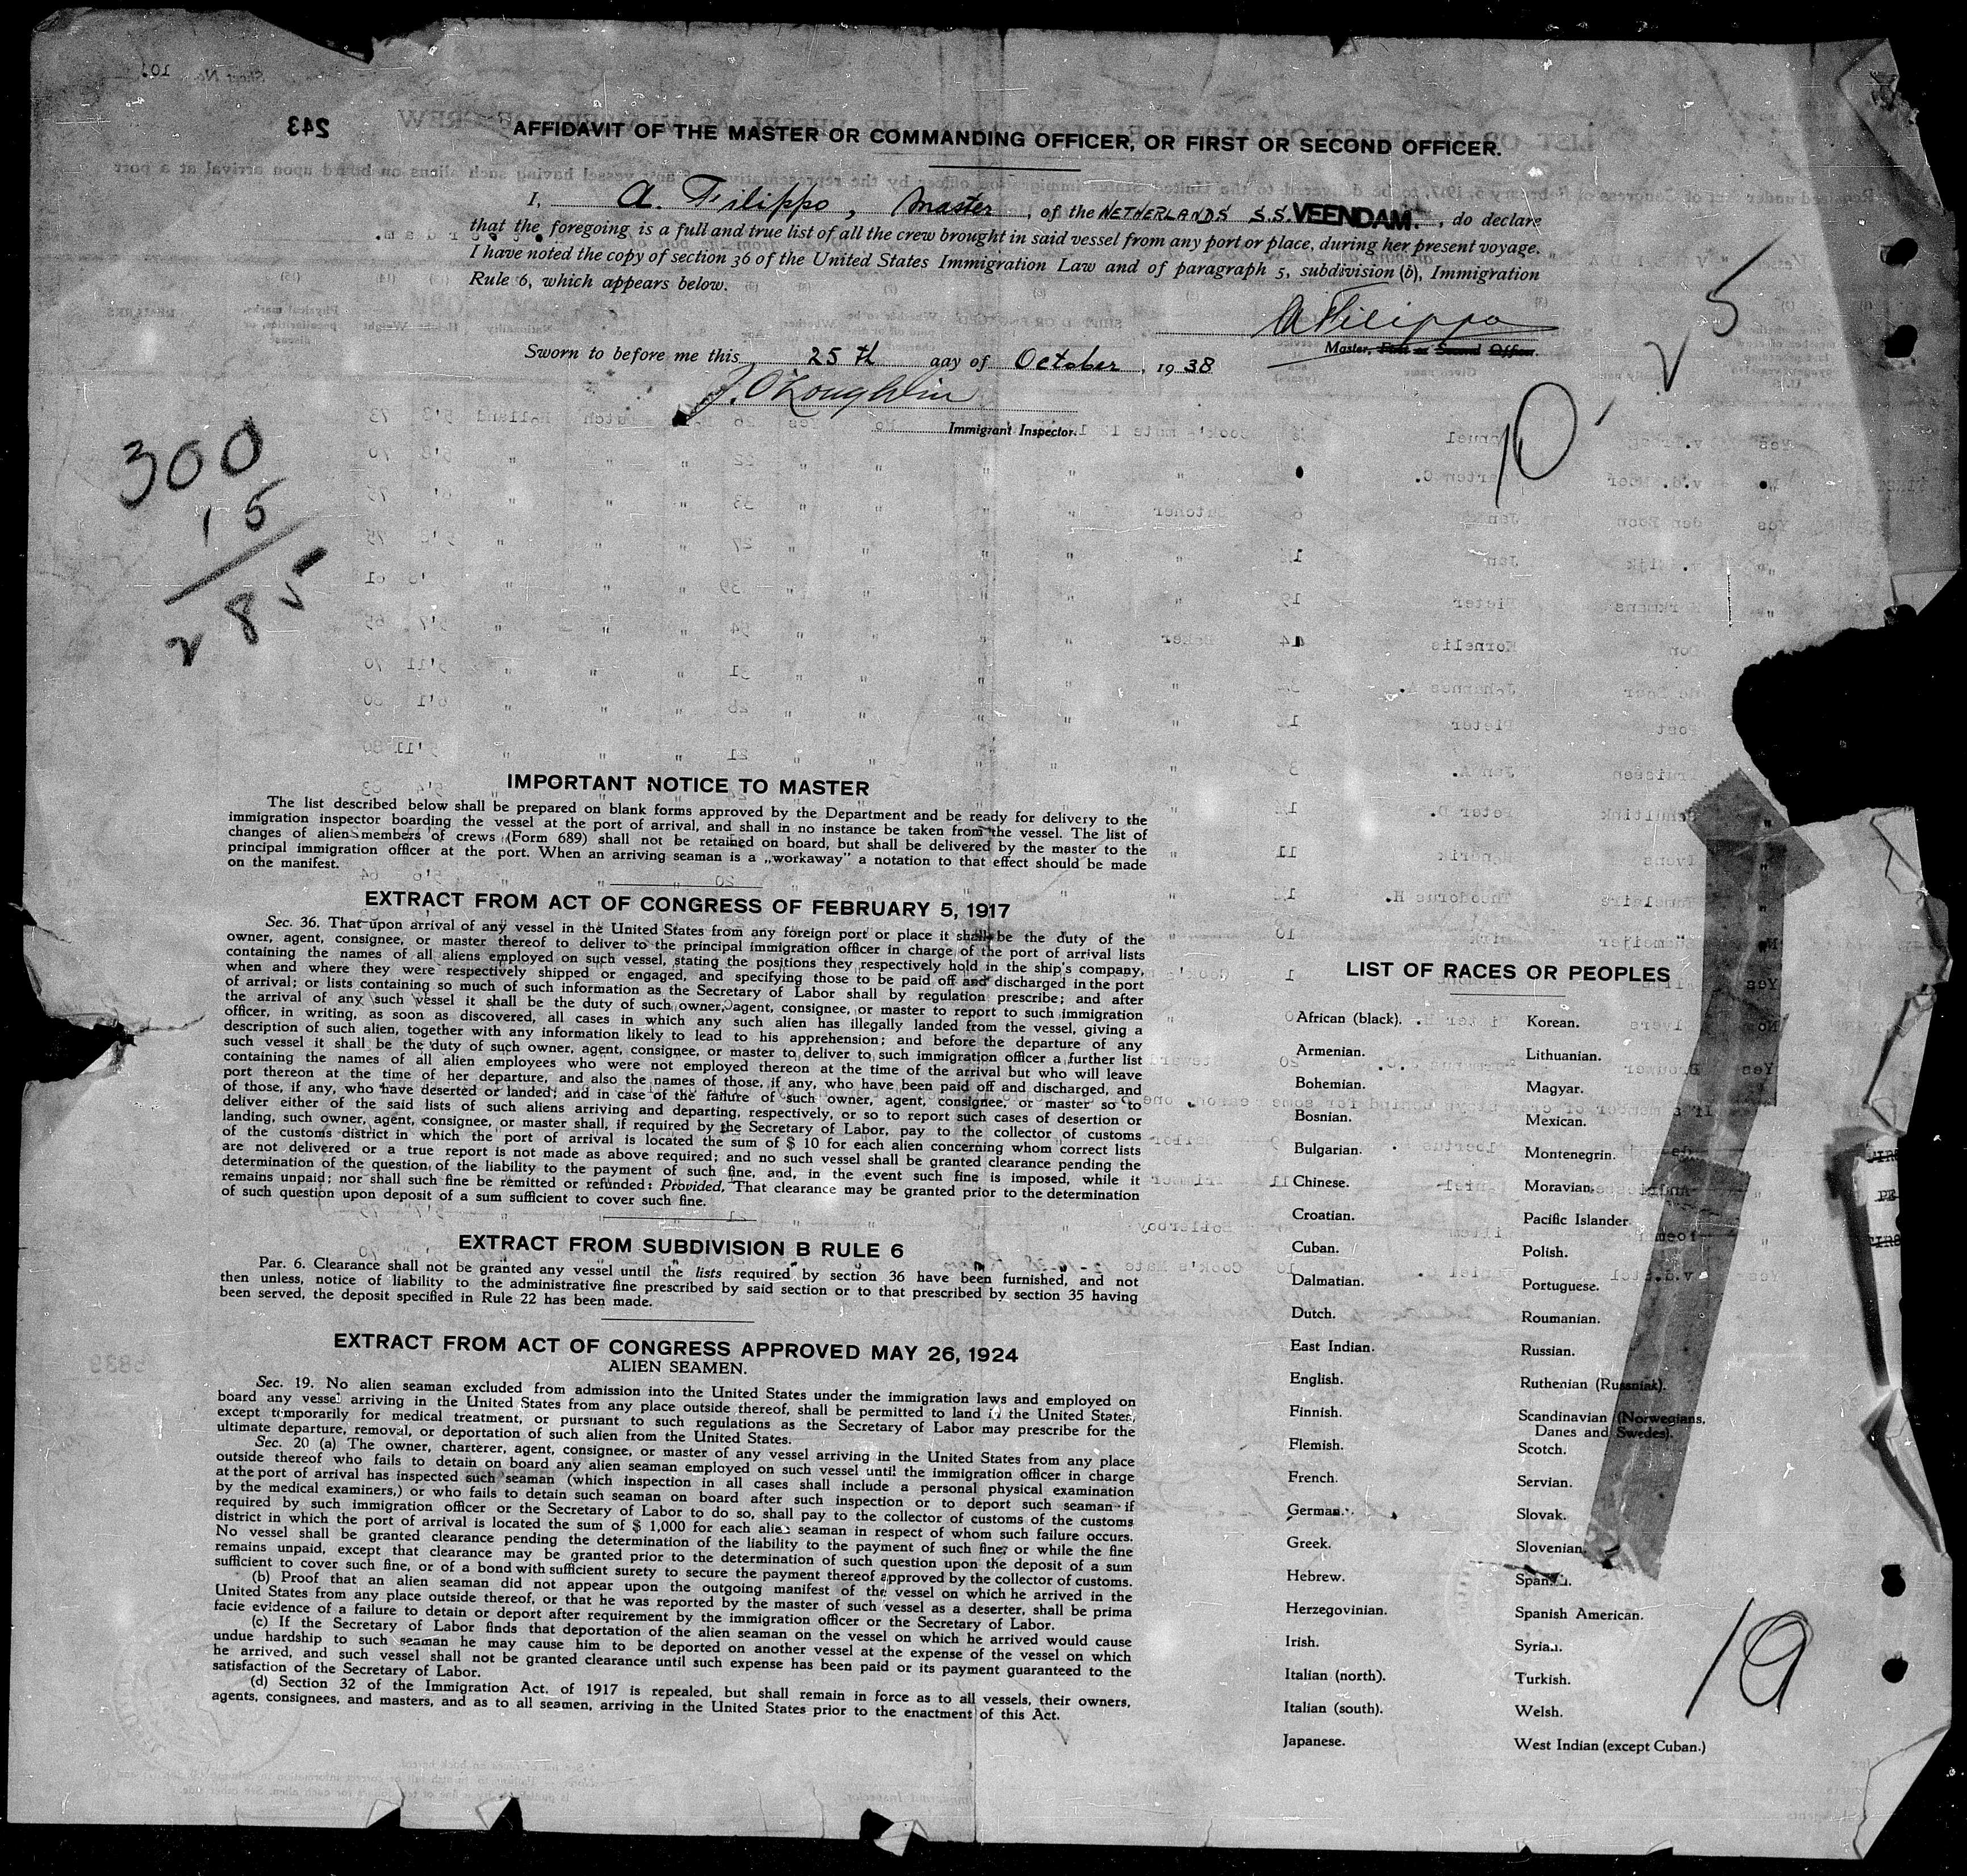 AFFIDAVIT OF THE MASTER OR COMMANDING OFFICER, OR FIRST OR SECOND OFFICER.
I, A. Filippo, Master, of the NETHERLANDS S.S. VEENDAM., do declare
that the foregoing is a full and true list of all the crew brought in said vessel from any port or place, during her present voyage.
I have noted the copy of section 36 of the United States Immigration Law and of paragraph 5, subdivision (b), Immigration
Rule 6, which appears below.
AFilippo
Master, First or Second Officer.
Sworn to before me this 25th day of October, 1938
J. O'Loughlin
Immigrant Inspector.
243
25
10
300
15
285
IMPORTANT NOTICE TO MASTER
The list described below shall be prepared on blank forms approved by the Department and be ready for delivery to the
immigration inspector boarding the vessel at the port of arrival, and shall in no instance be taken from the vessel. The list of
changes of alien members of crews (Form 689) shall not be retained on board, but shall be delivered by the master to the
principal immigration officer at the port. When an arriving seaman is a „workaway” a notation to that effect should be made
on the manifest.
EXTRACT FROM ACT OF CONGRESS OF FEBRUARY 5, 1917
Sec. 36. That upon arrival of any vessel in the United States from any foreign port or place it shall be the duty of the
owner, agent, consignee, or master thereof to deliver to the principal immigration officer in charge of the port of arrival lists
containing the names of all aliens employed on such vessel, stating the positions they respectively hold in the ship's company,
when and where they were respectively shipped or engaged, and specifying those to be paid off and discharged in the port
of arrival; or lists containing so much of such information as the Secretary of Labor shall by regulation prescribe; and after
the arrival of any such vessel it shall be the duty of such owner, agent, consignee, or master to report to such immigration
officer, in writing, as soon as discovered, all cases in which any such alien has illegally landed from the vessel, giving a
description of such alien, together with any information likely to lead to his apprehension; and before the departure of any
such vessel it shall be the duty of such owner, agent, consignee, or master to deliver to such immigration officer a further list
containing the names of all alien employees who were not employed thereon at the time of the arrival but who will leave
port thereon at the time of her departure, and also the names of those, if any, who have been paid off and discharged, and
of those, if any, who have deserted or landed; and in case of the failure of such owner, agent, consignee, or master so to
deliver either of the said lists of such aliens arriving and departing, respectively, or so to report such cases of desertion or
landing, such owner, agent, consignee, or master shall, if required by the Secretary of Labor, pay to the collector of customs
of the customs district in which the port of arrival is located the sum of $ 10 for each alien concerning whom correct lists
are not delivered or a true report is not made as above required; and no such vessel shall be granted clearance pending the
determination of the question of the liability to the payment of such fine, and, in the event such fine is imposed, while it
remains unpaid; nor shall such fine be remitted or refunded: Provided, That clearance may be granted prior to the determination
of such question upon deposit of a sum sufficient to cover such fine.
EXTRACT FROM SUBDIVISION B RULE 6
Par. 6. Clearance shall not be granted any vessel until the lists required by section 36 have been furnished, and not
then unless, notice of liability to the administrative fine prescribed by said section or to that prescribed by section 35 having
been served, the deposit specified in Rule 22 has been made.
EXTRACT FROM ACT OF CONGRESS APPROVED MAY 26, 1924
ALIEN SEAMEN.
Sec. 19. No alien seaman excluded from admission into the United States under the immigration laws and employed on
board any vessel arriving in the United States from any place outside thereof, shall be permitted to land in the United States,
except temporarily for medical treatment, or pursuant to such regulations as the Secretary of Labor may prescribe for the
ultimate departure, removal, or deportation of such alien from the United States.
Sec. 20 (a) The owner, charterer, agent, consignee, or master of any vessel arriving in the United States from any place
outside thereof who fails to detain on board any alien seaman employed on such vessel until the immigration officer in charge
at the port of arrival has inspected such seaman (which inspection in all cases shall include a personal physical examination
by the medical examiners,) or who fails to detain such seaman on board after such inspection or to deport such seaman if
required by such immigration officer or the Secretary of Labor to do so, shall pay to the collector of customs of the customs
district in which the port of arrival is located the sum of $ 1,000 for each alien seaman in respect of whom such failure occurs.
No vessel shall be granted clearance pending the determination of the liability to the payment of such fine, or while the fine
remains unpaid, except that clearance may be granted prior to the determination of such question upon the deposit of a sum
sufficient to cover such fine, or of a bond with sufficient surety to secure the payment thereof approved by the collector of customs.
(b) Proof that an alien seaman did not appear upon the outgoing manifest of the vessel on which he arrived in the
United States from any place outside thereof, or that he was reported by the master of such vessel as a deserter, shall be prima
facie evidence of a failure to detain or deport after requirement by the immigration officer or the Secretary of Labor.
(c) If the Secretary of Labor finds that deportation of the alien seaman on the vessel on which he arrived would cause
undue hardship to such seaman he may cause him to be deported on another vessel at the expense of the vessel on which
he arrived, and such vessel shall not be granted clearance until such expense has been paid or its payment guaranteed to the
satisfaction of the Secretary of Labor.
(d) Section 32 of the Immigration Act. of 1917 is repealed, but shall remain in force as to all vessels, their owners,
agents, consignees, and masters, and as to all seamen, arriving in the United States prior to the enactment of this Act.
LIST OF RACES OR PEOPLES
African (black).
Armenian.
Bohemian.
Bosnian.
Bulgarian.
Chinese.
Croatian.
Cuban.
Dalmatian.
Dutch.
East Indian.
English.
Finnish.
Flemish.
French.
German.
Greek.
Hebrew.
Herzegovinian.
Irish.
Italian (north).
Italian (south).
Japanese.
Korean.
Lithuanian.
Magyar.
Mexican.
Montenegrin.
Moravian.
Pacific Islander
Polish.
Portuguese.
Roumanian.
Russian.
Ruthenian (Russniak).
Scandinavian (Norwegians,
Danes and Swedes).
Scotch.
Servian.
Slovak.
Slovenian.
Spanish.
Spanish American.
Syrian.
Turkish.
Welsh.
West Indian (except Cuban.)
19